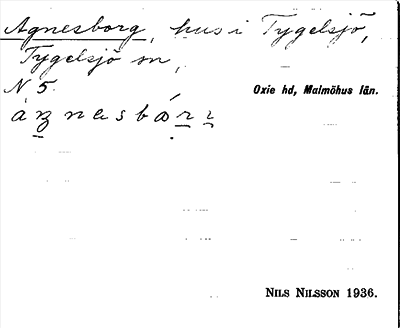 Agnesborg, hus i Tygelsjö,
Tygelsjö sn,
N 5.
Oxie hd, Malmöhus län.
NILS NILSSON 1936.